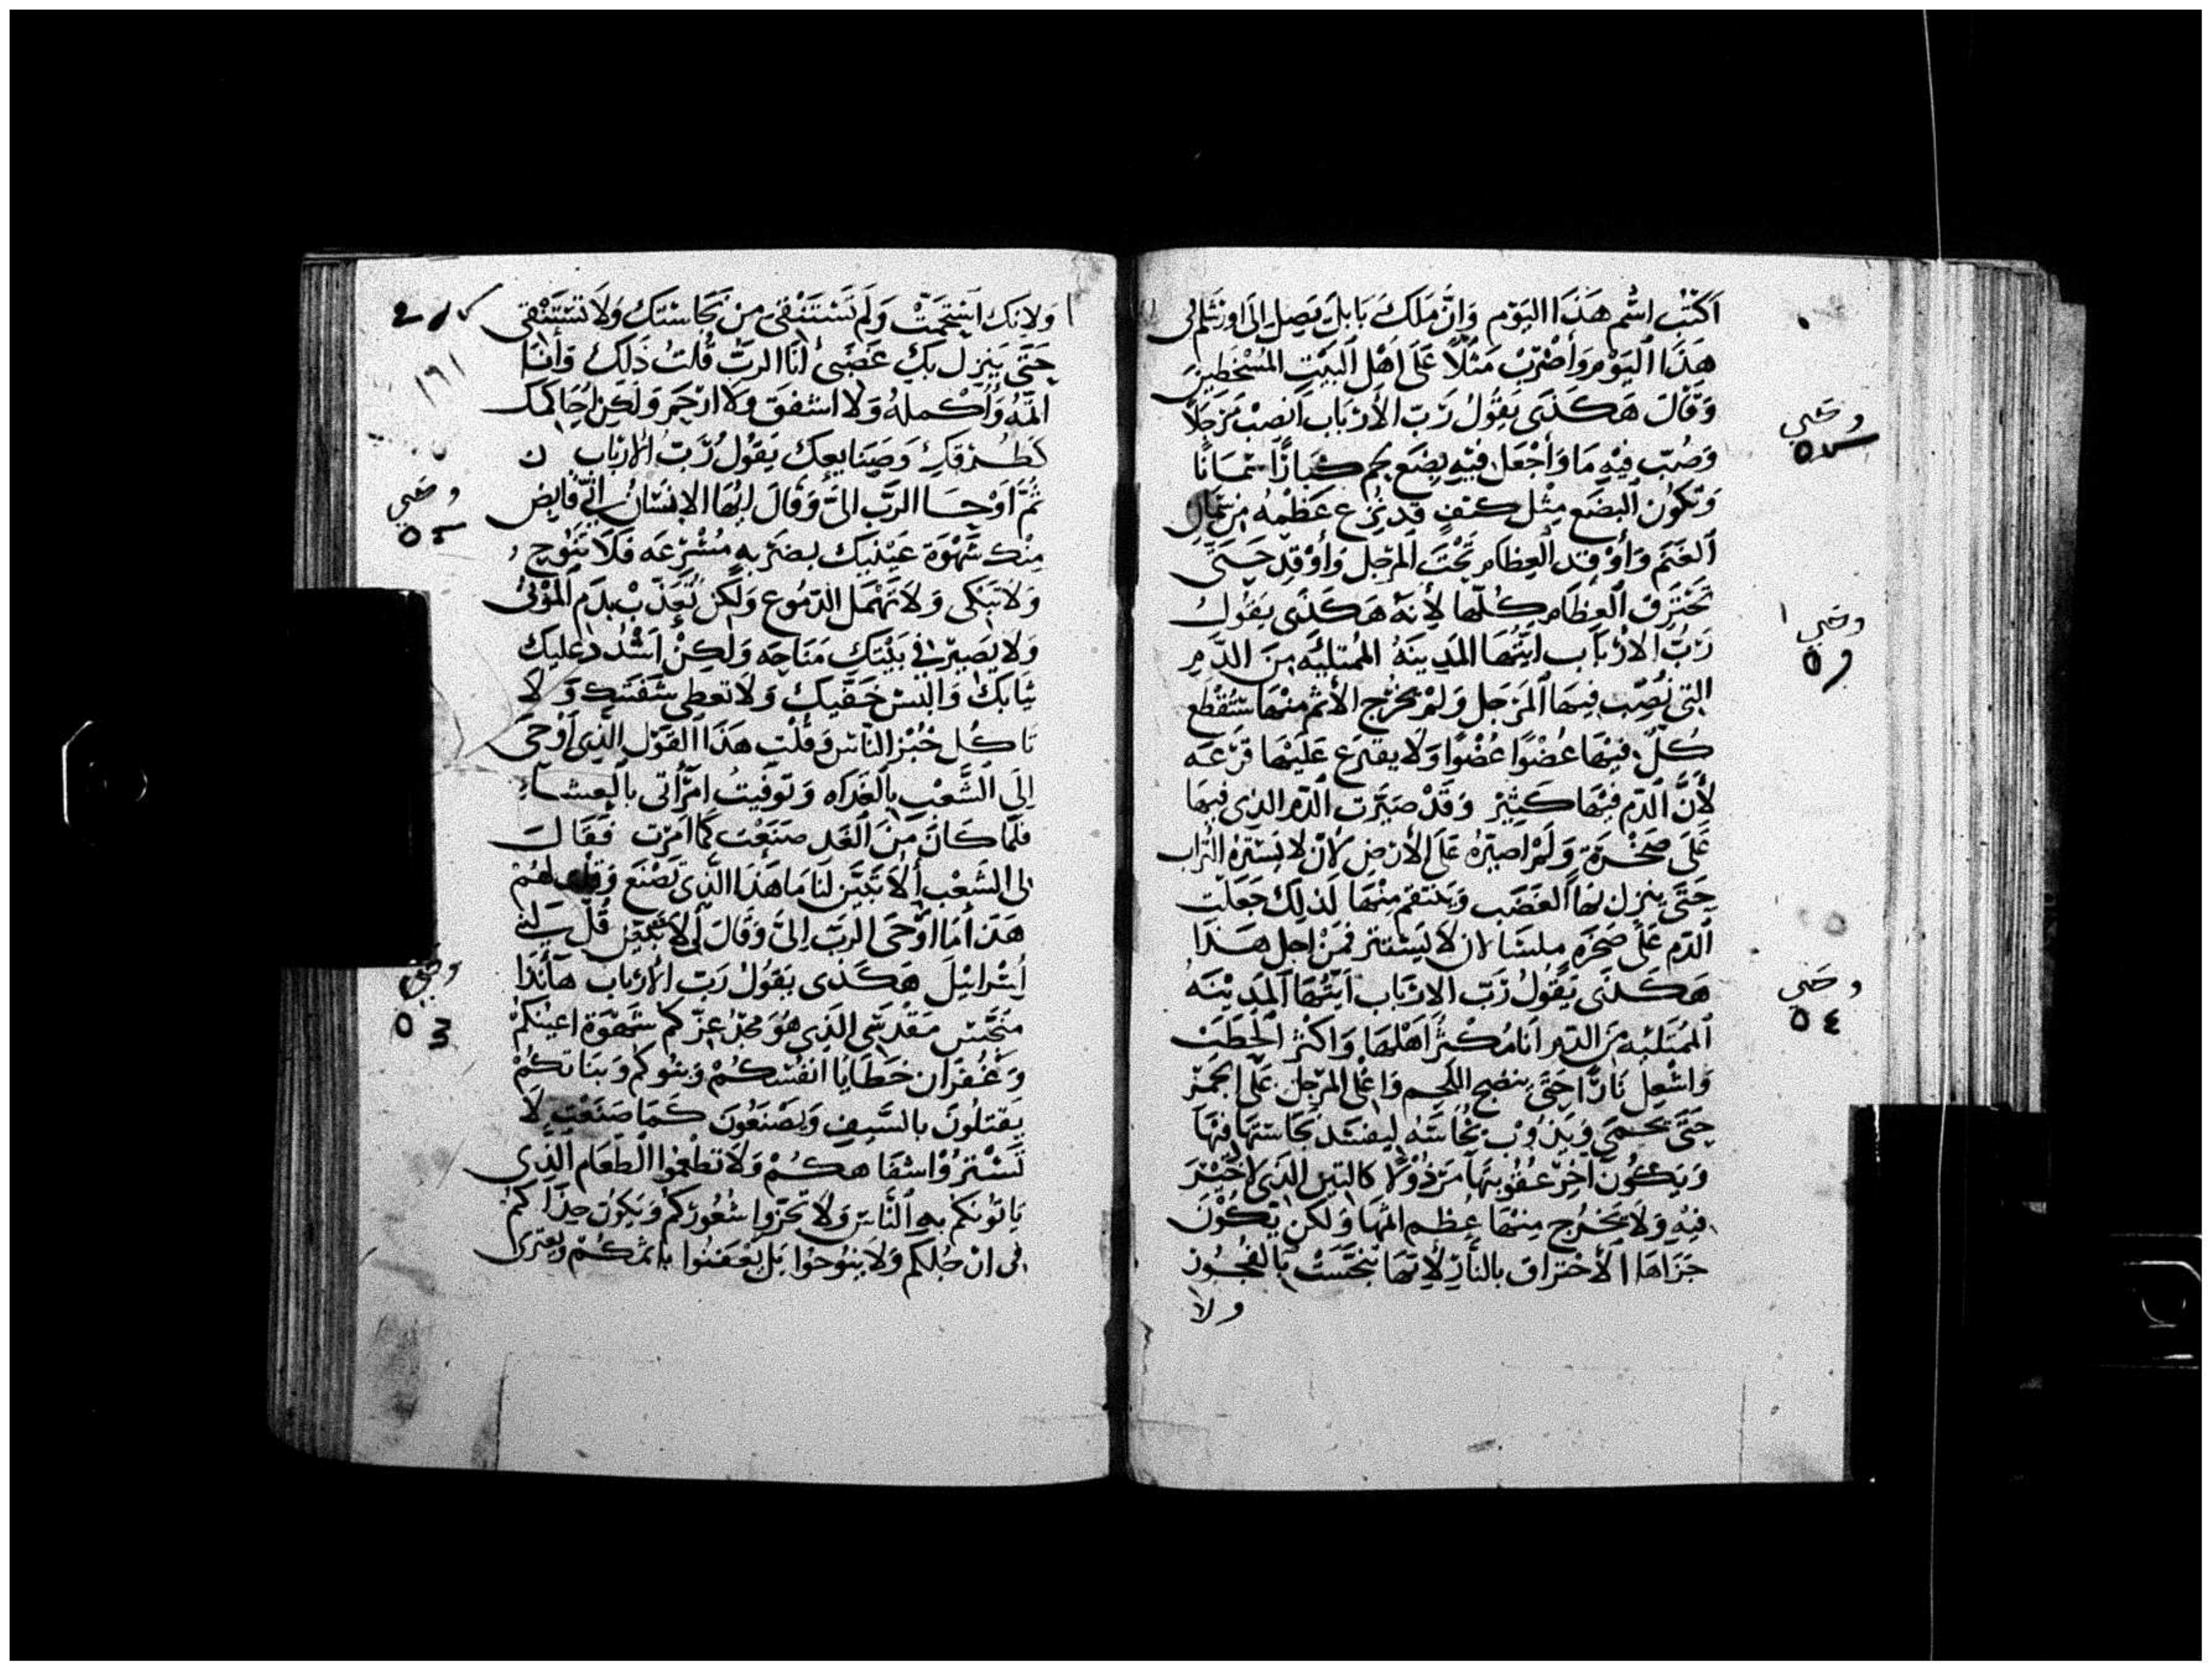 اَكتُب اسْم هَذا اليَوْم وَانَّ مَلِكَ بَابلَ يَصِل اِلَى اورَشلم في
هَذا اليَوْم وَاضْرِبْ مَثَلًا عَلَى اَهْل البَيْت المُسْخطِين
وَقَالَ هَكَذى يَقُولُ رَبّ الأرْبَاب اَنصبْ مَرجَلًا
وَصُبّ فِيهِ مَا وَاجْعَل فِيْهِ بضَع لحم كبَارًا سمَانًا
وَتكُون البضَع مِثْل كتف قد نُزع عَظْمُه من
الغَنَم وَأوْقِد العِظام تَحْتَ المرْجل وَأوْقِد حَتى
تحْتَرق العِظَام كلّها لأنهُ هَكَذَى يَقُول
رَبُّ الارْبَاب ايّتُهَا المَدِينَهُ المُمتليُه مِنَ الدَّمِ
التى نُصِّب فيهَا المَرجَل وَلَمْ يخرُج الأثم منْهَا ستُقْطَع
كُلّ فيْهَا عُضْوًا عُضْوًا وَلا يقترع عَليْهَا قَرْعَه
لأَنَّ الدّم فيْهَا كَثِيْر وَقَدْ صَيَّرَت الدّم الذِى فيهَا
عَلَى صَخْرَة وَلَمْ اصيّرهُ عَلى الأرض لأن لا يَسْترهُ التُراب
حَتَّى ينزل بهَا الغَضَب وَينتقم مِنْهَا لذلِكَ جَعَلت
الدّم عَلى صَخرَه ملسَا لان لا يَسْتتر فمنْ اجل هَذا
هَكَذى يَقُولُ رَبّ الارْبَاب ايّتُهَا المَدِيْنَهُ
المُمتَليُه مِنَ الدّم أنا مُكثرُ اَهْلهَا وَاكثرُ الحَطَبْ
وَاشْعِلُ نَارًا حَتى ينضج اللَّحم وَاغْلى المرْجل عَلى الجمْر
حَتى يحمَى وَيَذوب نحَاسُه ليفسَد نجَاسَتهَا فِيْهَا
وَيَكُون اخر عقُوبتهَا مَرذُوْلًا كالتبن الذى لا خَيْر
فيْهِ وَلا يَخْرُج مِنهَا عظم اثمهَا وَلكن يَكُون
جَزَاهَا الأحْترَاق بالنَّارِ لأنهَا تنجّسَتْ بالفُجُور
ولا
وضى
وضى
وضى
٥٤
ولانك استحمَيْت وَلم تَسْتنْقى مِنْ نَجَاسْتك وَلا تَسْتَنْقى
حَتى يَنزل بكِ غَضَبى أنَا الربّ قُلتُ ذَلِك وَأنَا
اتمّهُ وَأكْملهُ وَلا اشفق وَلا ارْحَم وَلكِن احَاكمك
كَطُرقكِ وَصَنايعك يَقُولُ رَبُّ الارْباب
ثُمَّ اَوْحَا الربّ اِلىّ وَقَالَ ايّهَا الانسَانُ اِنّى قابض
مِنْك شَهْوَة عَيْنيك بضرْبه مُسْرعَه فَلا تَنُوح
وَلا تبْكى وَلا تهْمَل الدّمُوع وَلكن تعَذّبْ بدَم المَوْتى
وَلا يصيّر فى بَيْتك مَنَاحَه وَلكِنْ اَشْدُد عليك
ثيَابك وَالبس خفّيك وَلا تعطى شَفَتك وَلا
تاكل خُبز النَّاس وَقلت هَذا القَوْل الذِى أوْحى
اِلَى الشَّعْب بالغَدَاه وَتَوفيتُ امرَأتى بالعشَاء
فلَمّا كَانَ مِنَ الغَد صنَعْت كَمَا امرْت فقَالَ
لى الشَعْب ألا تبَيّن لنَا مَا هَذَا الذِى تَصْنَع وَقلت لهُم
هَذا مَا اوْحَى الربّ اِلىَّ وَقَالَ لى قُل لبَنى
اِسْرَايْيلَ هَكَذى يَقُولُ رَبّ الأرْباب هَأنَذا
منَجّس مَقْدسى الذِى هُوَ مَجدُ عِزّكم شَهْوَة اعينكمْ
وَغُفرَان خطَايَا انفُسكُمْ وَبنُوكم وَبنَاتكُم
يقتلُونَ بالسَّيف وَتَصْنعُونَ كَمَا صَنَعْت لا
تَسْترُوْا شفَاهكُمْ وَلا تطْعَمُوا الطعَام الذِى
يَاتونكم بهِ النَّاس وَلا تجزّوا شُعُورَكم وَيَكون حِذَاكم
فى ارْجُلكم وَلا ينُوحُوا بَل يعْفنُوا باثمكُم ويعترى
١٩١
وضى
وضى